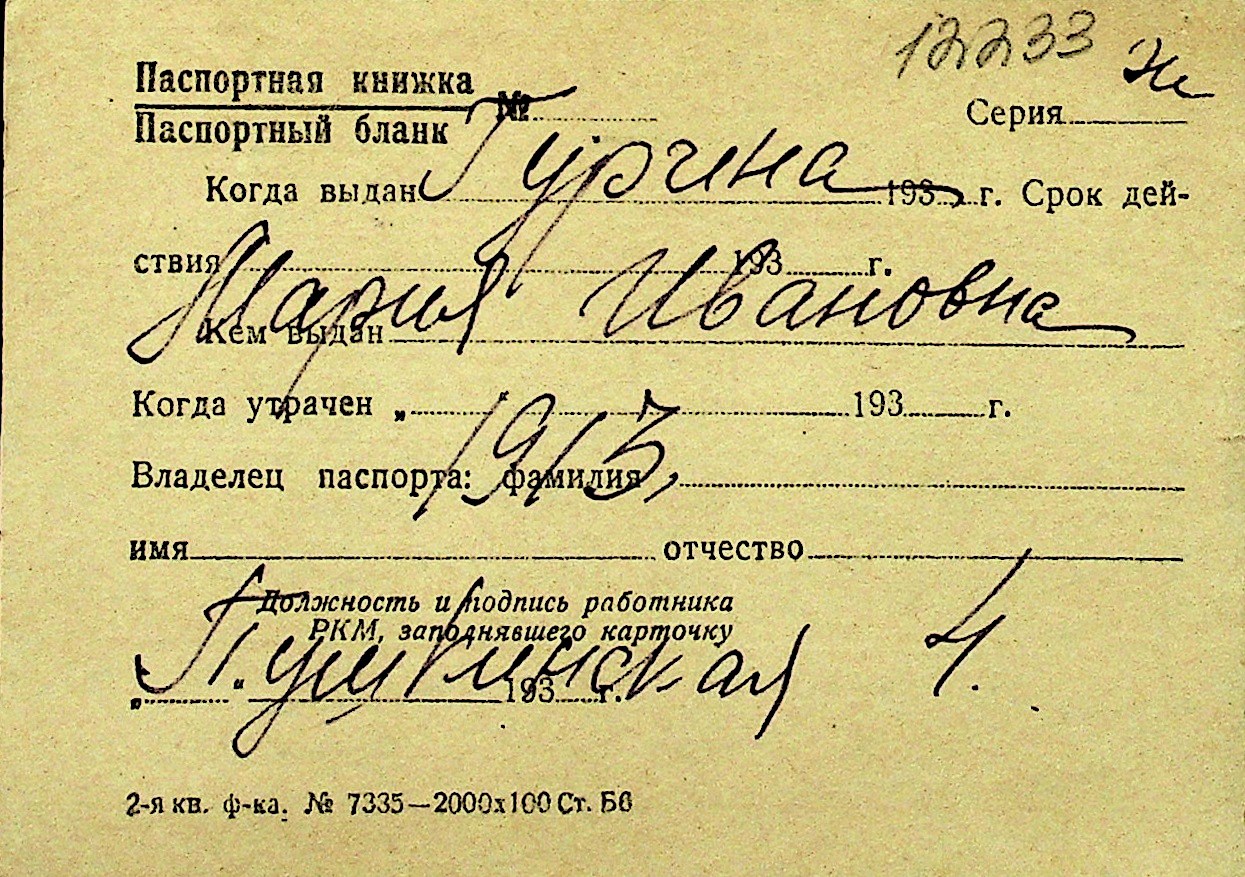 12233 Ж
Паспортная книжка
Паспортный бланк № Серия
Гурина
Когда выдан 193 г. Срок дей-
ствия 193 г.
Мария Ивановна
Кем выдан
Когда утрачен „ “ 193 г.
1913
Владелец паспорта: фамилия
имя отчество
Должность и подпись работника
РКМ, заполнявшего карточку
Пушкинская 4.
„ “ 193 г.
2-я кв. ф-ка. № 7335—2000х100 Ст. Бб